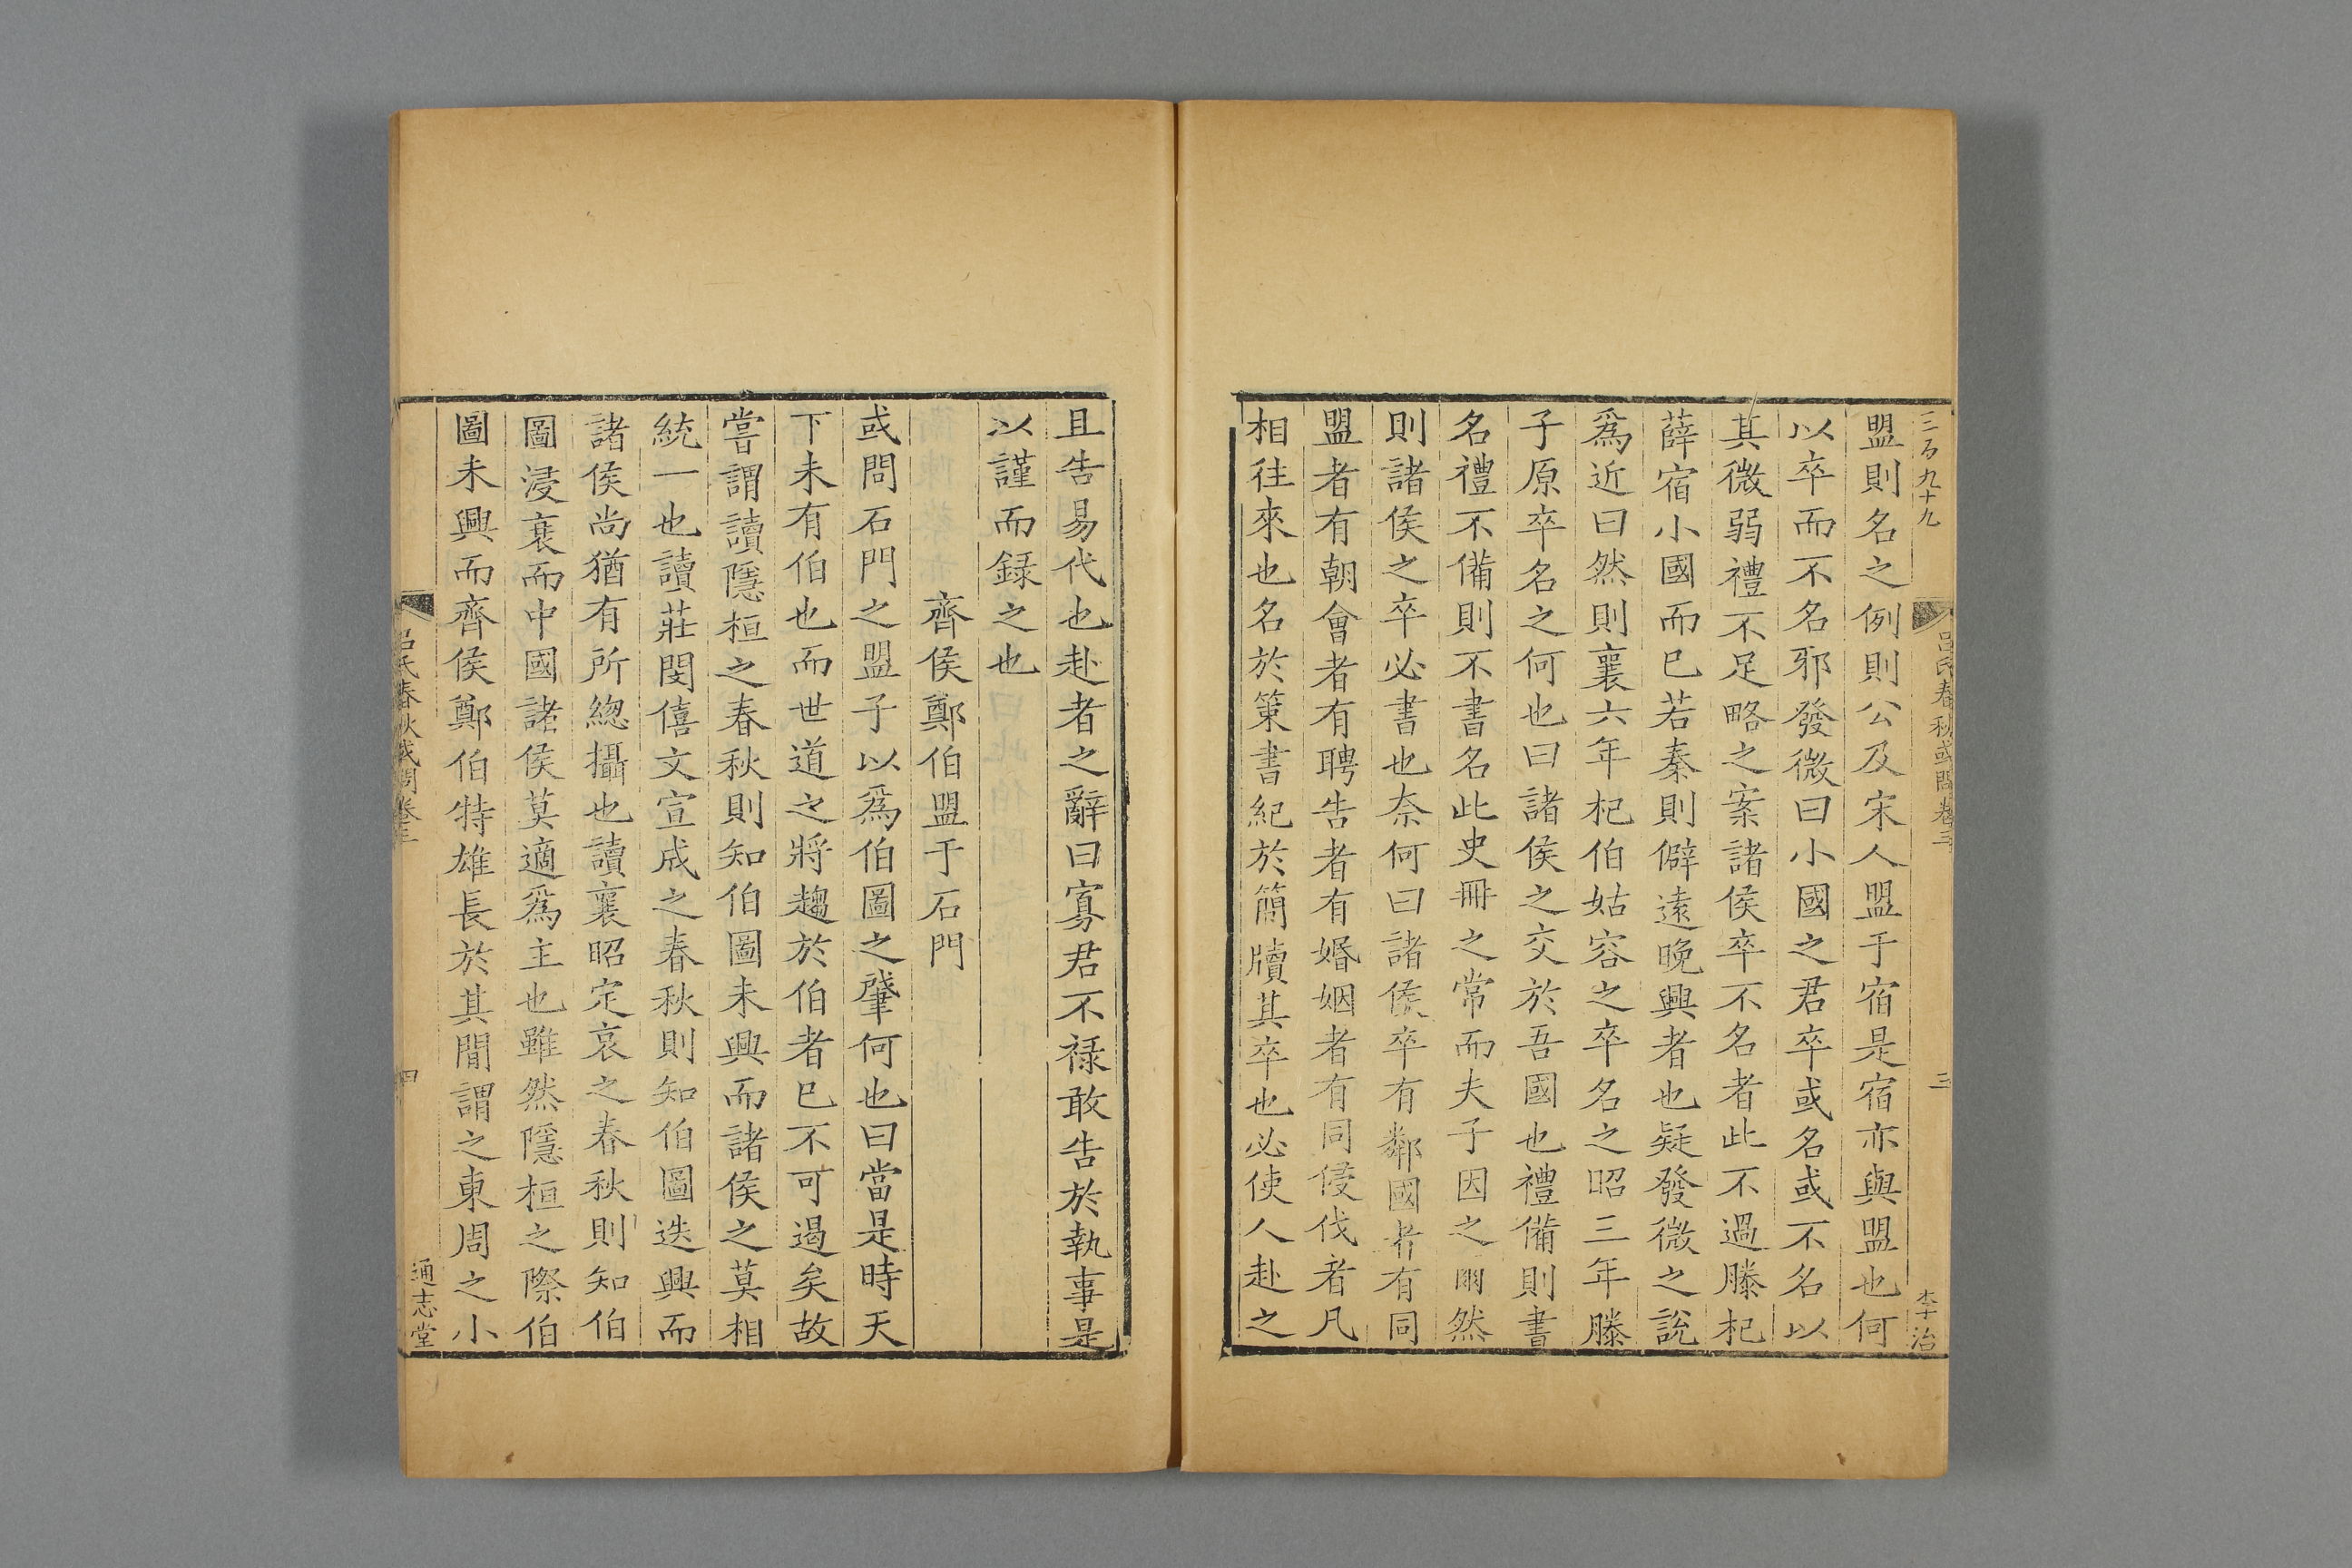 三百九十九
呂氏春秋或問卷三
三
李治
盟則名之例則公及宋人盟于宿是宿亦與盟也何
以卒而不名邪發微曰小國之君卒或名或不名以
其微弱禮不足略之案諸侯卒不名者此不過滕杞
薛宿小國而已若秦則僻遠晚興者也疑發微之說
爲近曰然則襄六年杞伯姑容之卒名之昭三年滕
子原卒名之何也曰諸侯之交於吾國也禮備則書
名禮不備則不書名此史冊之常而夫子因之爾然
則諸侯之卒必書也奈何曰諸侯卒有鄰國者有同
盟者有朝會者有聘告者有婚姻者有同侵伐者凡
相往來也名於策書紀於簡牘其卒也必使人赴之
且告易代也赴者之辭曰寡君不祿敢告於執事是
以謹而録之也
齊侯鄭伯盟于石門
或問石門之盟子以爲伯圖之肇何也曰當是時天
下未有伯也而世道之將趨於伯者已不可遏矣故
嘗謂讀隱桓之春秋則知伯圖未興而諸侯之莫相
統一也讀莊閔僖文宣成之春秋則知伯圖迭興而
諸侯尚猶有所總攝也讀襄昭定哀之春秋則知伯
圖浸衰而中國諸侯莫適爲主也雖然隱桓之際伯
圖未興而齊侯鄭伯特雄長於其間謂之東周之小
呂氏春秋或問卷三
四
通志堂